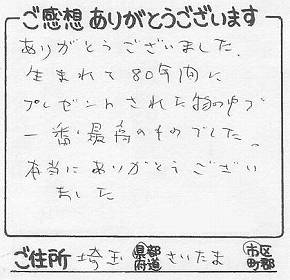 ご感想 ありがとうございます
ありがとうございました。
生まれて80年間に
プレゼントされた物の中で
一番・最高のものでした。
本当にありがとうござい
ました
ご住所 埼玉 都道府県 さいたま 市区町郡